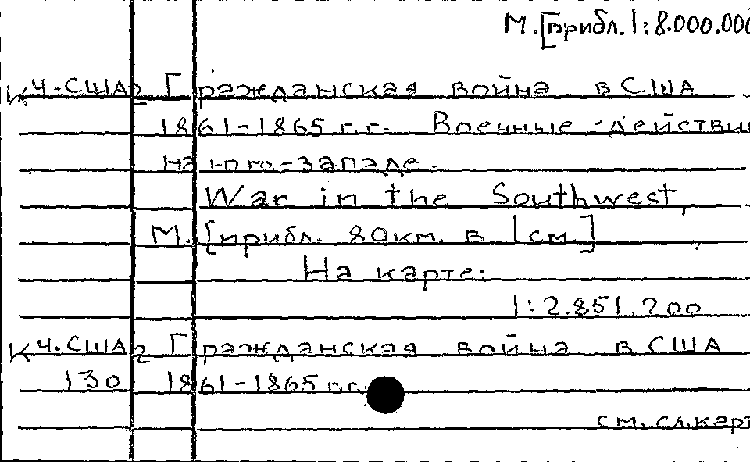 М.[прибл. 1:8.000.000
К Ч-США2 Гражданская война в США
1861-1865 г.г. Военные действи
на юго-западе.
War in the Southwest,
М. [прибл. 80км. в 1см.]
На карте:
1:2.851.200
К Ч.США2 Гражданская война в США
130 1861-1865 г.г.
см. сл.карт